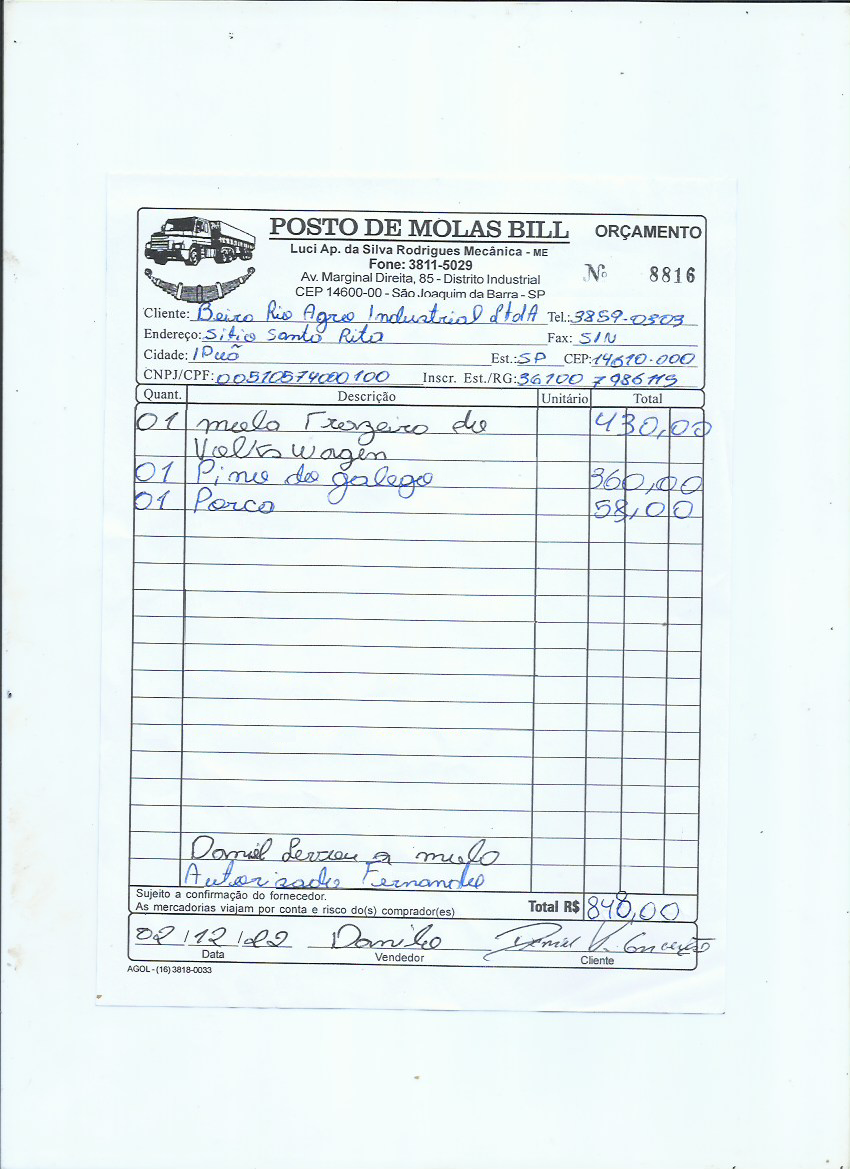 POSTO DE MOLAS BILL
ORÇAMENTO
Luci Ap. da Silva Rodrigues Mecânica - ME
Fone: 3811-5029
Av. Marginal Direita, 85 - Distrito Industrial
CEP 14600-00 - São Joaquim da Barra - SP
Nº 8816
Cliente: Beira Rio Agro Industrial LtdA Tel.: 3859-0303
Endereço: Sitio Santo Rita Fax: S/N
Cidade: IPuã Est.: SP CEP: 14610-000
CNPJ/CPF: 00510574000100 Inscr. Est./RG: 36100 7986115
Quant. Descrição Unitário Total
01 mola Trazeira da 430,00
Volks Wagen
01 Pino do galego 360,00
01 Porca 58,00
Daniel Levou a mola
Autorizado Fernando
Sujeito a confirmação do fornecedor.
As mercadorias viajam por conta e risco do(s) comprador(es)
Total R$ 848,00
02/12/22 Danilo Daniel V. Conceição
Data Vendedor Cliente
AGOL - (16) 3818-0033